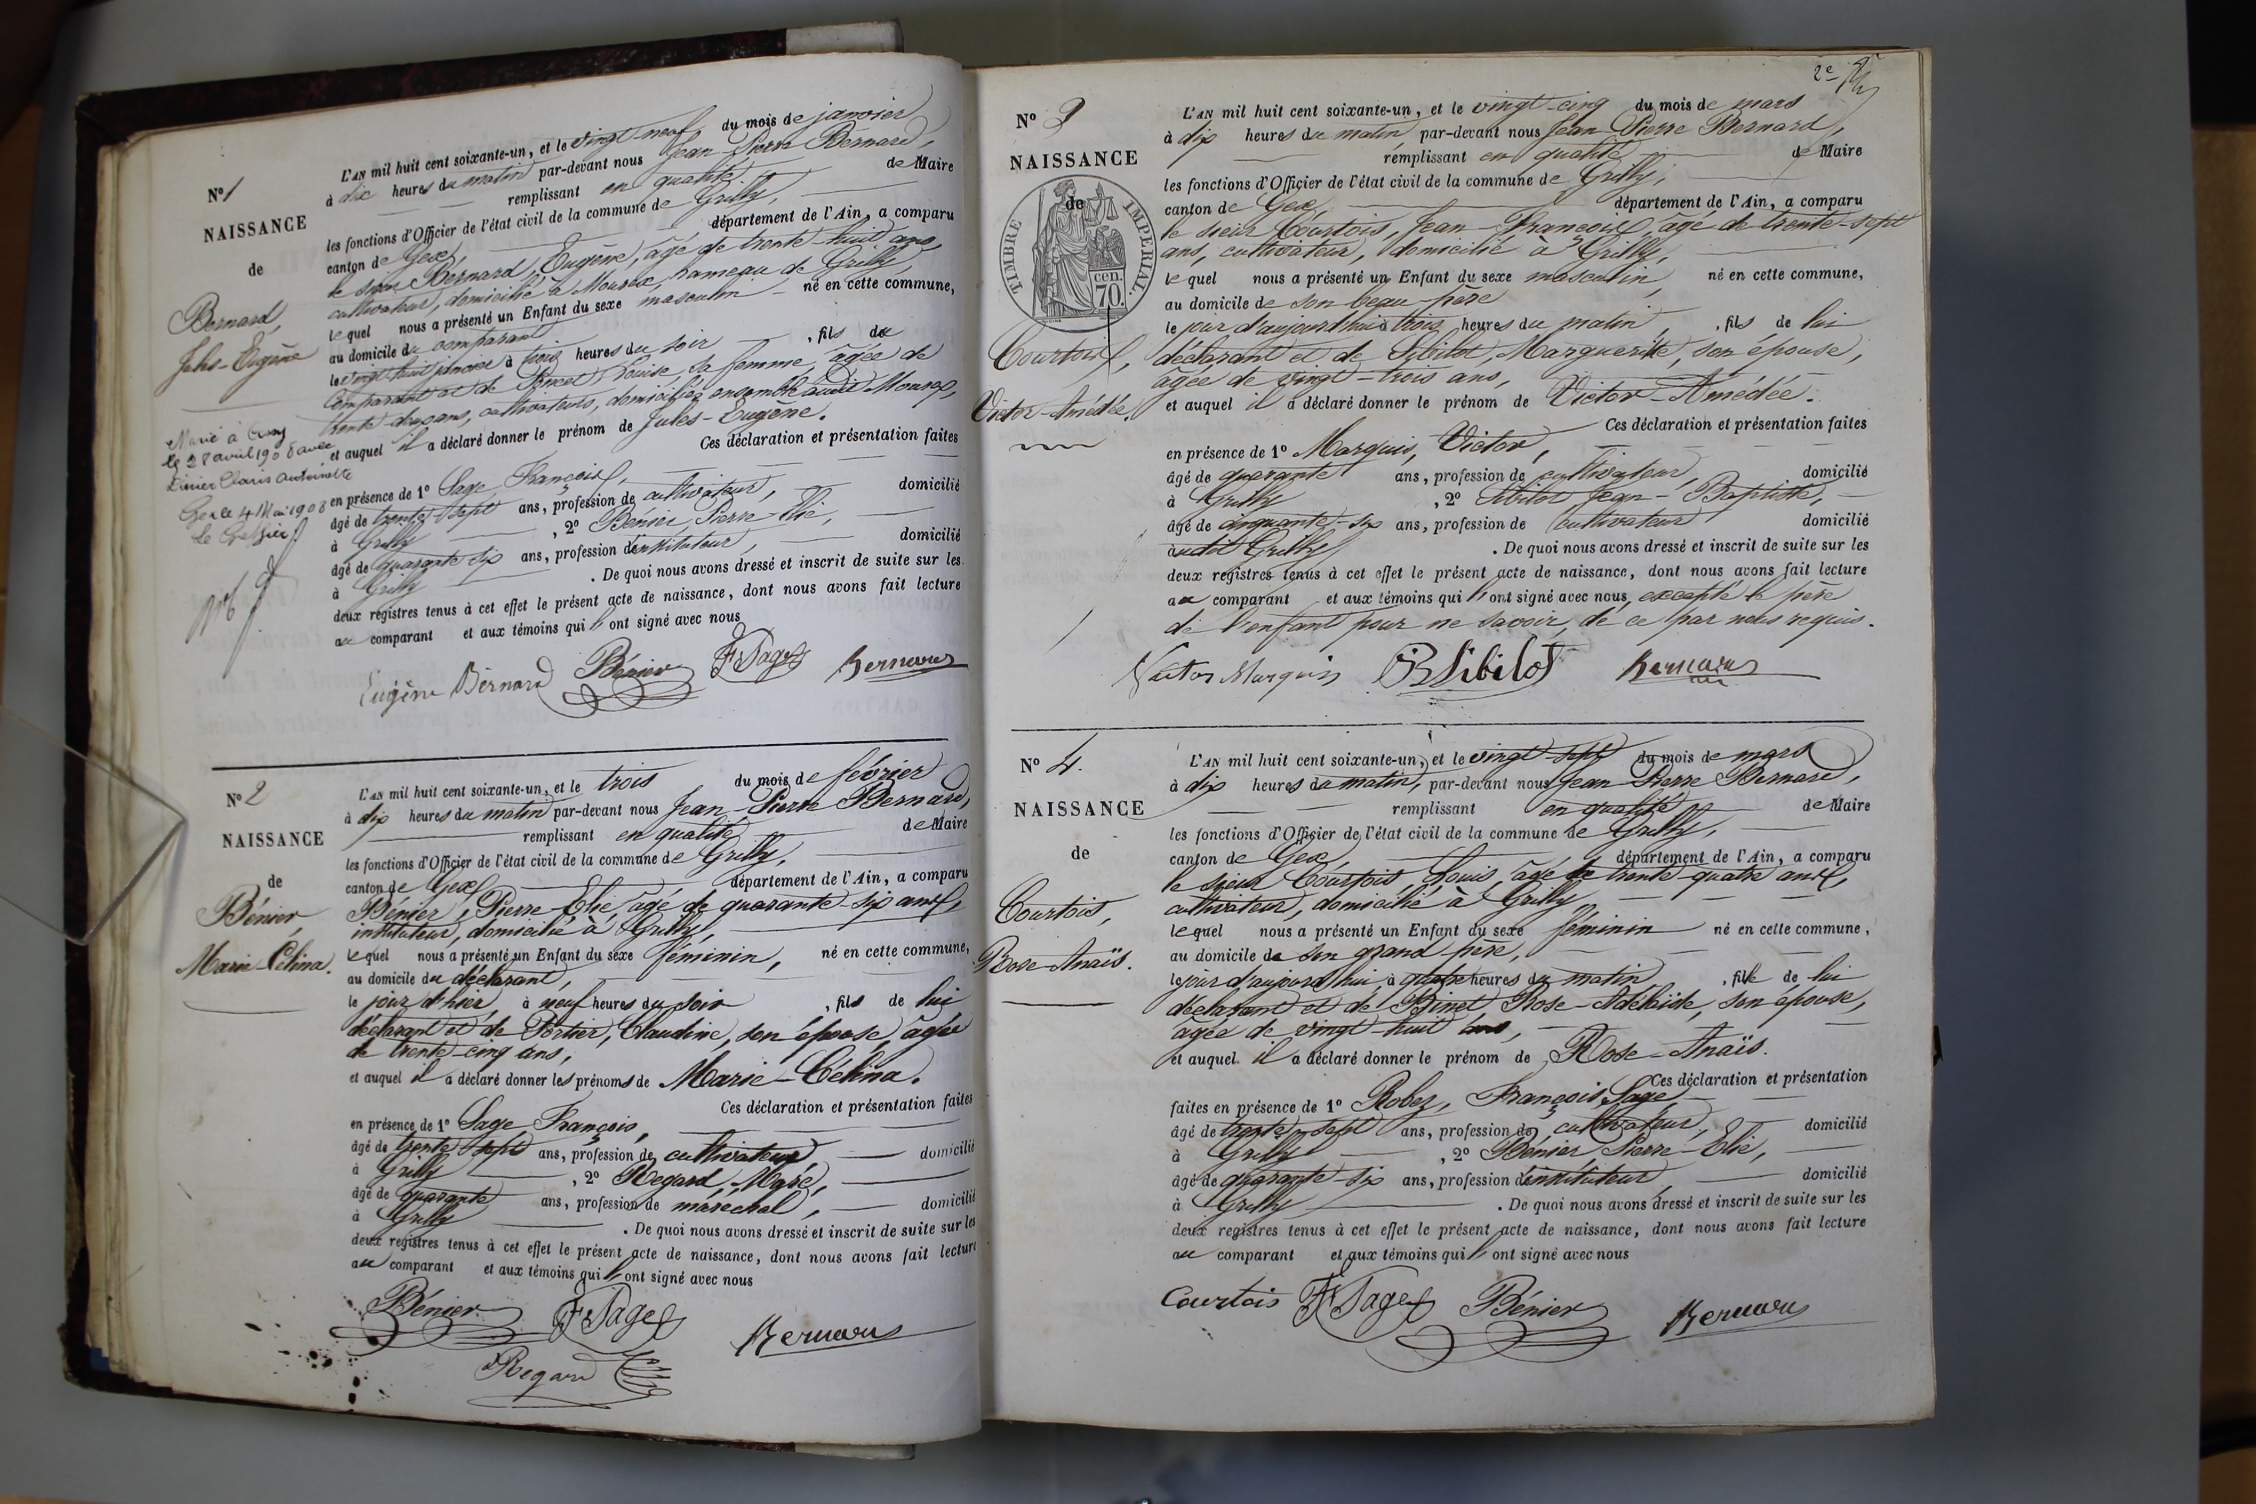 N° 1
NAISSANCE
de
Bernard,
Jules-Eugène
Marié à Crozy
le 28 avril 1908 avec
Claris Antoinette
Gex le 4 Mai 1908
Le Greffier
L'AN mil huit cent soixante-un, et le vingt-neuf du mois de janvier
à dix heures du matin par-devant nous Jean-Pierre Bernard,
remplissant en qualité de Maire
les fonctions d'Officier de l'état civil de la commune de Grilly,
canton de Gex, département de l'Ain, a comparu
le sieur Bernard, Eugène, âgé de trente-huit ans,
cultivateur, domicilié à Mourex, hameau de Grilly
lequel nous a présenté un Enfant du sexe masculin né en cette commune,
au domicile du comparant
le vingt-huit janvier à trois heures du soir, fils du
comparant et de Louise, sa femme, âgée de
trente-deux ans, cultivateurs, domiciliés ensemble audit Mourex,
et auquel il a déclaré donner le prénom de Jules-Eugène.
Ces déclaration et présentation faites
en présence de 1° Sage François,
âgé de trente-sept ans, profession de cultivateur, domicilié
à Grilly, 2° Bénier, Pierre-Elie,
âgé de quarante-six ans, profession d'instituteur, domicilié
à Grilly. De quoi nous avons dressé et inscrit de suite sur les
deux registres tenus à cet effet le présent acte de naissance, dont nous avons fait lecture
au comparant et aux témoins qui ont signé avec nous
Eugène Bernard Bénier F Sage Bernard
N° 2
NAISSANCE
de
Bénier,
Marie-Célina.
L'AN mil huit cent soixante-un, et le trois du mois de février
à dix heures du matin par-devant nous Jean-Pierre Bernard,
remplissant en qualité de Maire
les fonctions d'Officier de l'état civil de la commune de Grilly,
canton de Gex, département de l'Ain, a comparu
Bénier, Pierre-Elie, âgé de quarante-six ans,
instituteur, domicilié à Grilly,
lequel nous a présenté un Enfant du sexe féminin, né en cette commune,
au domicile du déclarant,
le jour d'hier, à neuf heures du soir, fils de lui
déclarant et de Portier, Claudine, son épouse, âgée
de trente-cinq ans,
et auquel il a déclaré donner les prénoms de Marie-Célina.
Ces déclaration et présentation faites
en présence de 1° Sage François,
âgé de trente-sept ans, profession de cultivateur domicilié
à Grilly, 2° Regard, Maré,
âgé de quarante ans, profession de maréchal, domicilié
à Grilly. De quoi nous avons dressé et inscrit de suite sur les
deux registres tenus à cet effet le présent acte de naissance, dont nous avons fait lecture
au comparant et aux témoins qui ont signé avec nous
Bénier F Sage Bernard
Regard
2e
N° 3
NAISSANCE
de
TIMBRE IMPERIAL.
cen.
70.
Courtois,
Victor-Amédée.
L'AN mil huit cent soixante-un, et le vingt-cinq du mois de mars
à dix heures du matin, par-devant nous Jean-Pierre Bernard,
remplissant en qualité de Maire
les fonctions d'Officier de l'état civil de la commune de Grilly,
canton de Gex, département de l'Ain, a comparu
le sieur Courtois, Jean-François, âgé de trente-sept
ans, cultivateur, domicilié à Grilly,
lequel nous a présenté un Enfant du sexe masculin, né en cette commune,
au domicile de son beau-père
le jour d'aujourd'hui à trois heures du matin, fils de lui
déclarant et de Sibilot, Marguerite, son épouse,
âgée de vingt-trois ans,
et auquel il a déclaré donner le prénom de Victor-Amédée.
Ces déclaration et présentation faites
en présence de 1° Marquis, Victor,
âgé de quarante ans, profession de cultivateur, domicilié
à Grilly, 2° Sibilot Jean-Baptiste,
âgé de cinquante-six ans, profession de cultivateur domicilié
audit Grilly. De quoi nous avons dressé et inscrit de suite sur les
deux registres tenus à cet effet le présent acte de naissance, dont nous avons fait lecture
au comparant et aux témoins qui ont signé avec nous, excepté le père
de l'enfant pour ne savoir, de ce par nous requis.
Victor Marquis JB Sibilot Bernard
N° 4.
NAISSANCE
de
Courtois,
Rose-Anaïs.
L'AN mil huit cent soixante-un, et le vingt-sept du mois de mars
à dix heures du matin, par-devant nous Jean-Pierre Bernard,
remplissant en qualité de Maire
les fonctions d'Officier de l'état civil de la commune de Grilly,
canton de Gex, département de l'Ain, a comparu
le sieur Courtois, Louis, âgé de trente-quatre ans,
cultivateur, domicilié à Grilly
lequel nous a présenté un Enfant du sexe féminin né en cette commune,
au domicile de son grand père,
le jour d'aujourd'hui, à quatre heures du matin, fille de lui
déclarant et de Binet, Rose-Adélaïde, son épouse,
âgée de vingt-huit ans,
et auquel il a déclaré donner le prénom de Rose-Anaïs.
Ces déclaration et présentation
faites en présence de 1° Robez, François Sage
âgé de trente-sept ans, profession de cultivateur, domicilié
à Grilly, 2° Bénier Pierre-Elie,
âgé de quarante-six ans, profession d'instituteur, domicilié
à Grilly. De quoi nous avons dressé et inscrit de suite sur les
deux registres tenus à cet effet le présent acte de naissance, dont nous avons fait lecture
au comparant et aux témoins qui ont signé avec nous
Courtois F Sage Bénier Bernard